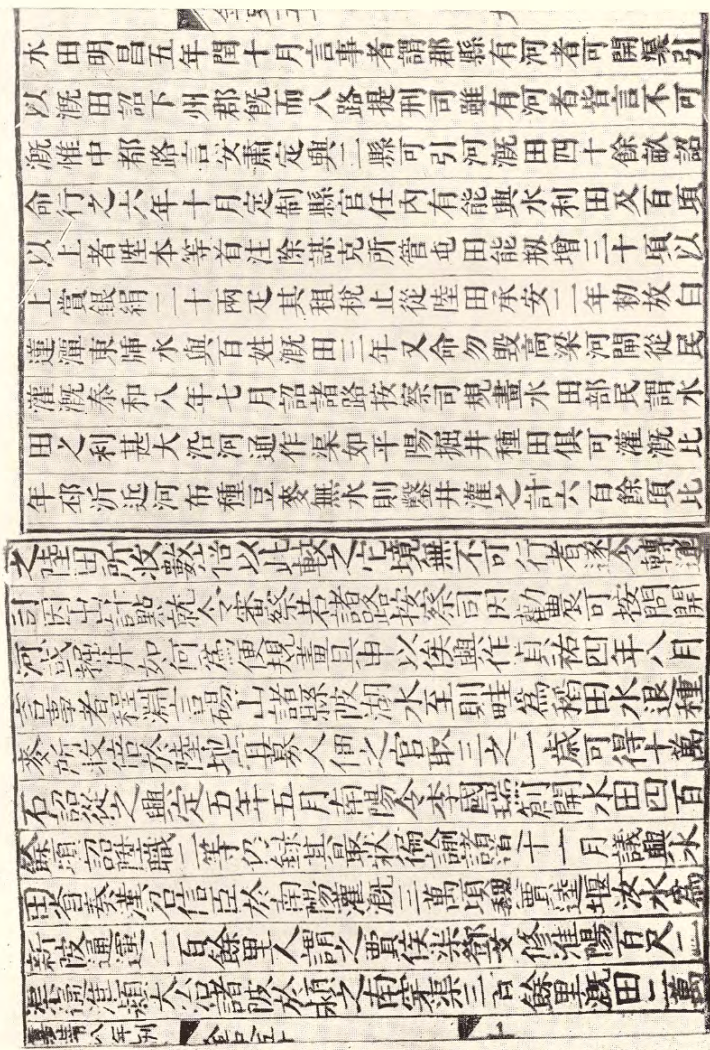 水田明昌五年閏十月言事者謂郡縣有河者可開渠引
以溉田詔下州郡旣而八路提刑司雖有河者皆言不可
溉惟中都路言安肅定興二縣可引河溉田四十餘畝詔
命行之六年十月定制縣官任內有能興水利田及百頃
以上者陞本等首注除謀克所管屯田能刱增三十頃以
上賞銀絹二十兩疋其租稅止從陸田承安二年勑放白
蓮潭東牐水與百姓溉田三年又命勿毀高梁河閘從民
灌溉泰和八年七月詔諸路按察司規畫水田部民謂水
田之利甚大沿河通作渠如平陽掘井種田俱可灌溉比
年邳沂近河布種豆麥無水則鑿井灌之計六百餘頃比
之陸田所收數倍以此較之它境無不可行者遂令轉運
司因出計點就令審察若諸路按察司因勸農可按問開
河或掘井如何爲便規畫具申以俟興作貞祐四年八月
言事者程淵言碭山諸縣陂湖水至則畦爲稻田水退種
麥所收倍於陸地宜募人佃之官取三之一歲可得十萬
石詔從之興定五年五月南陽令李國瑞刱開水田四百
餘頃詔陞職二等仍錄其最狀徧諭諸處十一月議興水
田省奏漢召信臣於南陽灌溉三萬頃魏賈逵堰汝水爲
新陂通運二百餘里人謂之賈侯渠鄧艾修淮陽百尺二
渠通淮潁大治諸陂於潁之南穿渠三百餘里溉田二萬
嘉靖八年刊
金史五十